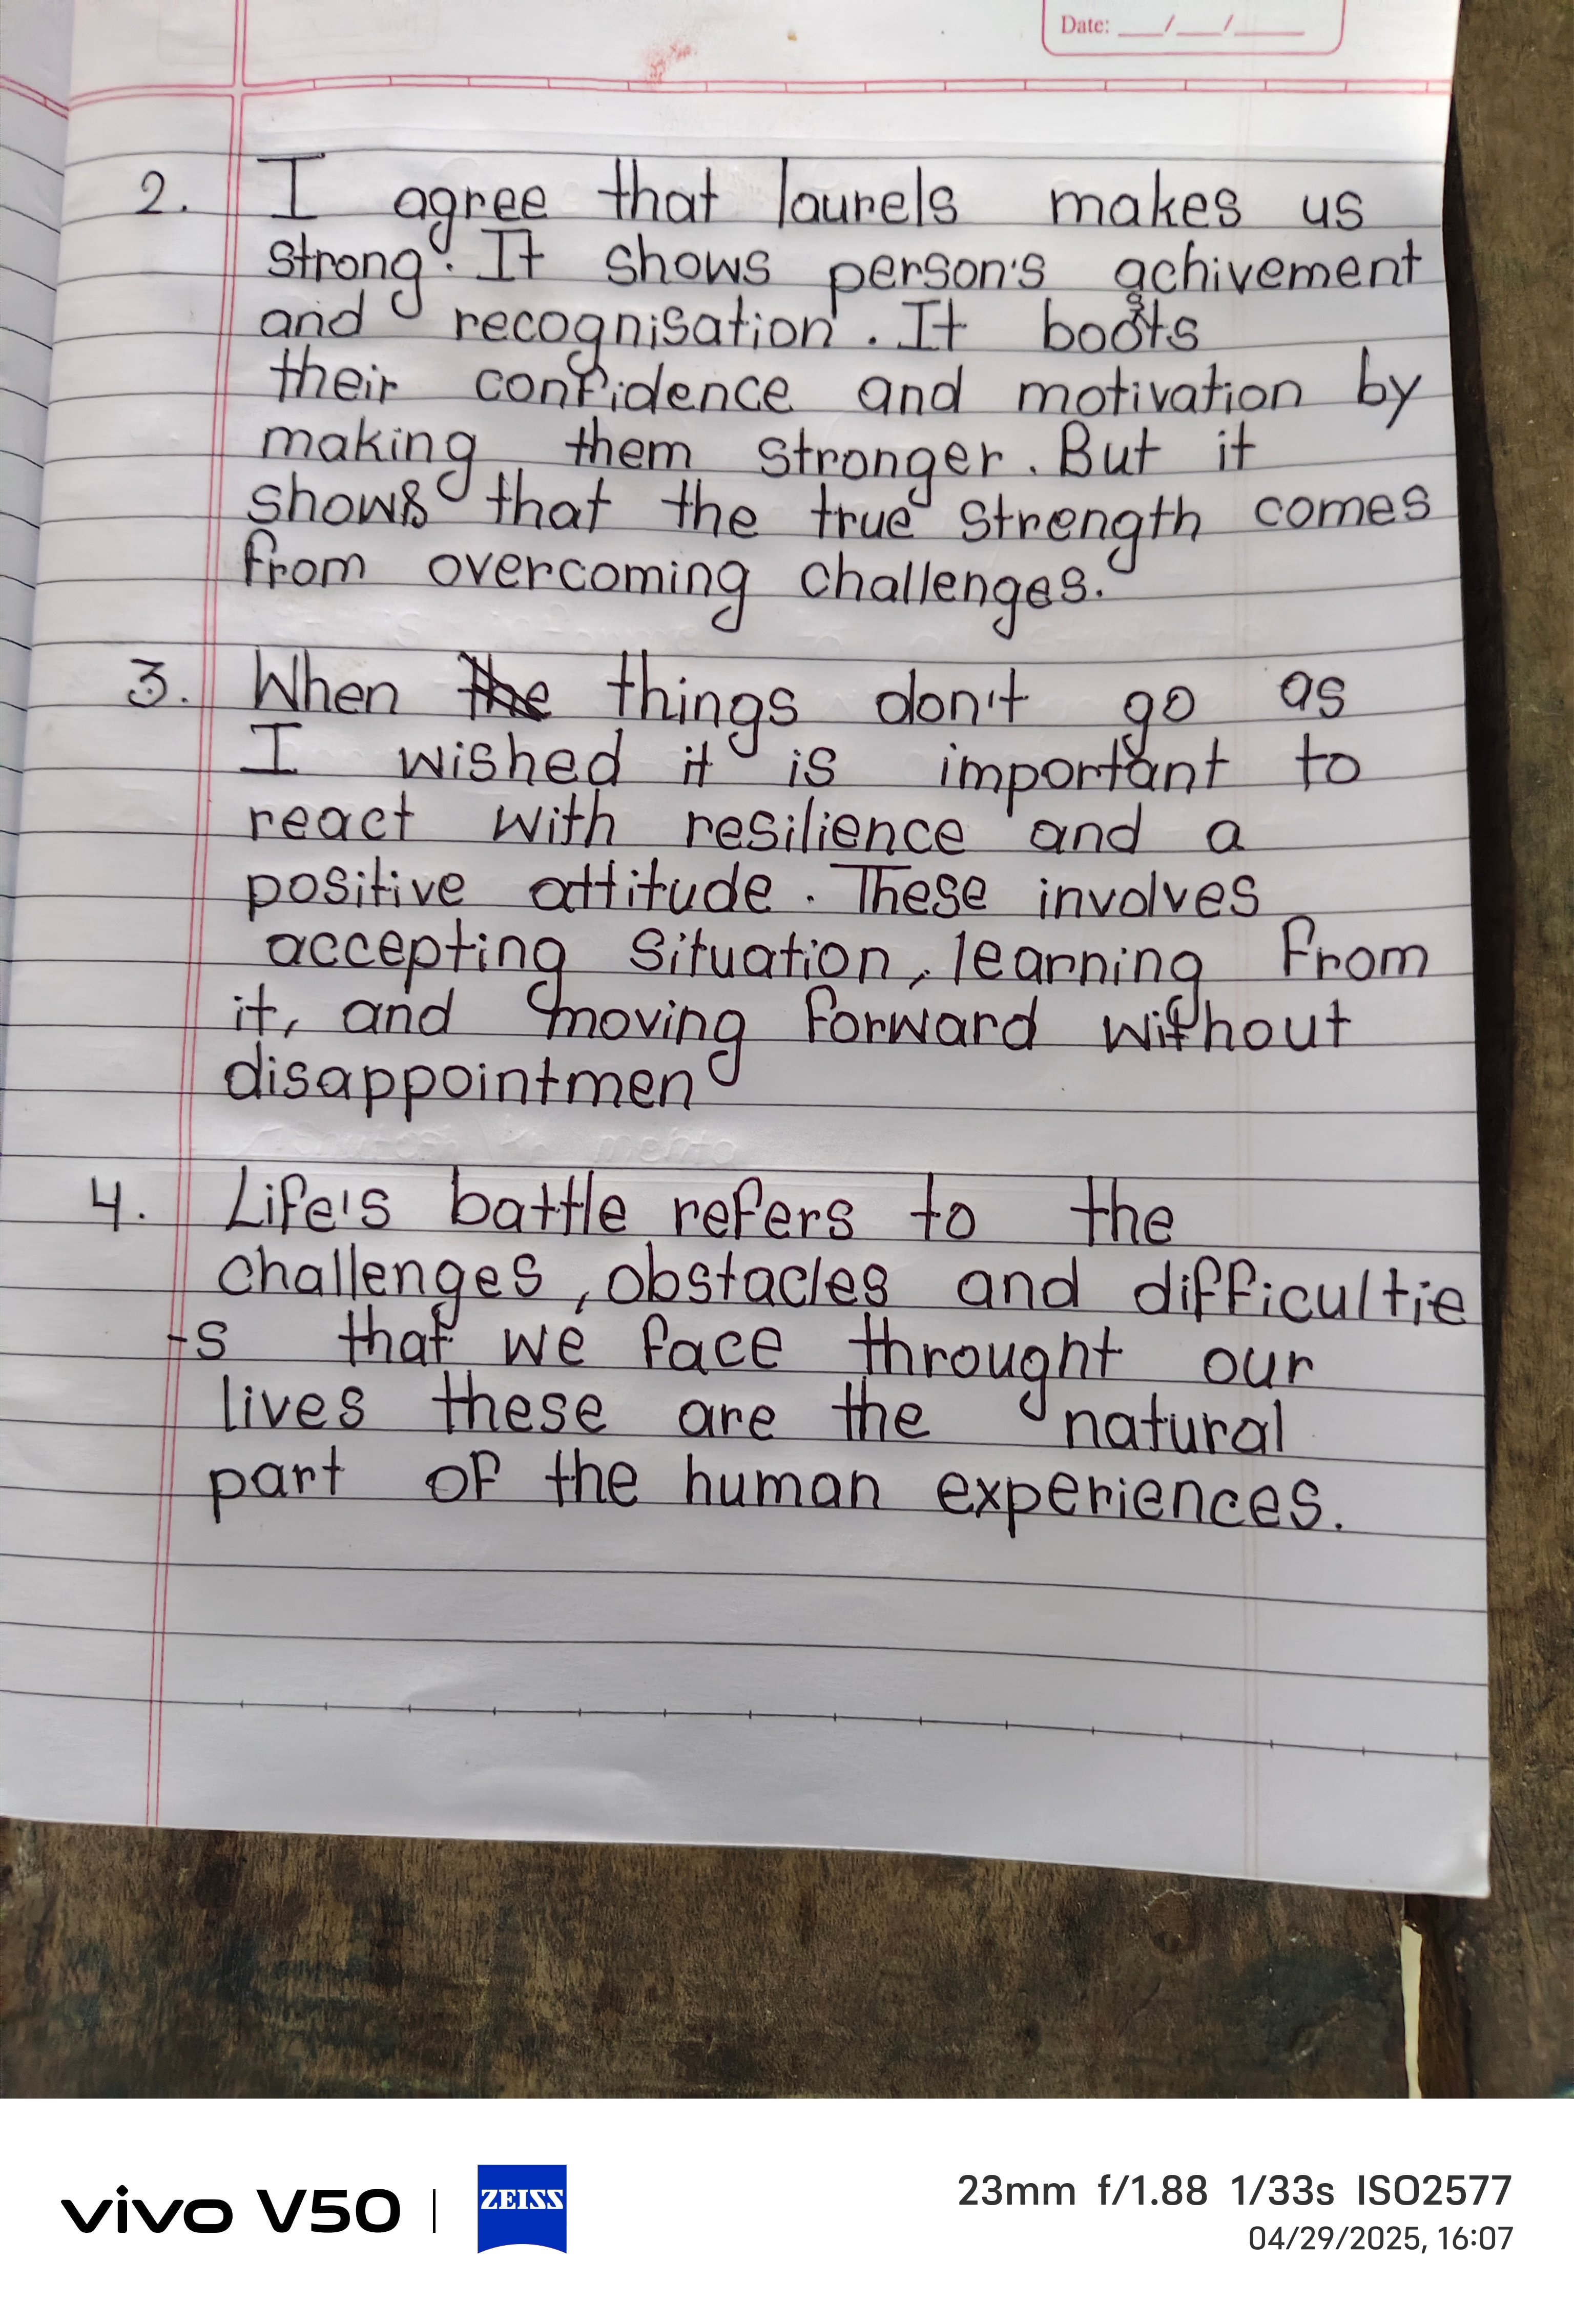 Date: __/__/____
2. I agree that laurels makes us
strong. It shows person's achivement
and recognisation. It boosts
their confidence and motivation by
making them stronger. But it
shows that the true strength comes
from overcoming challenges.
3. When the things don't go as
I wished it is important to
react with resilience and a
positive attitude. These involves
accepting situation, learning from
it, and moving forward without
disappointmen
4. Life's battle refers to the
challenges, obstacles and difficultie
-s that we face throught our
lives these are the natural
part of the human experiences.
vivo V50 | ZEISS
23mm f/1.88 1/33s ISO2577
04/29/2025, 16:07